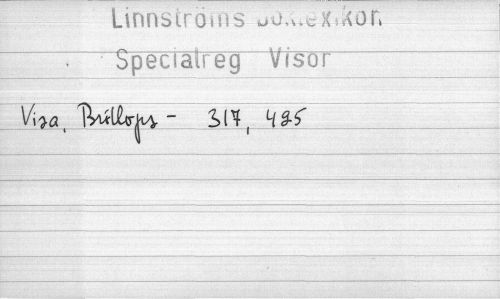 Linnströms Boklexikon
Specialreg Visor
Visa, Bröllops- 317, 425